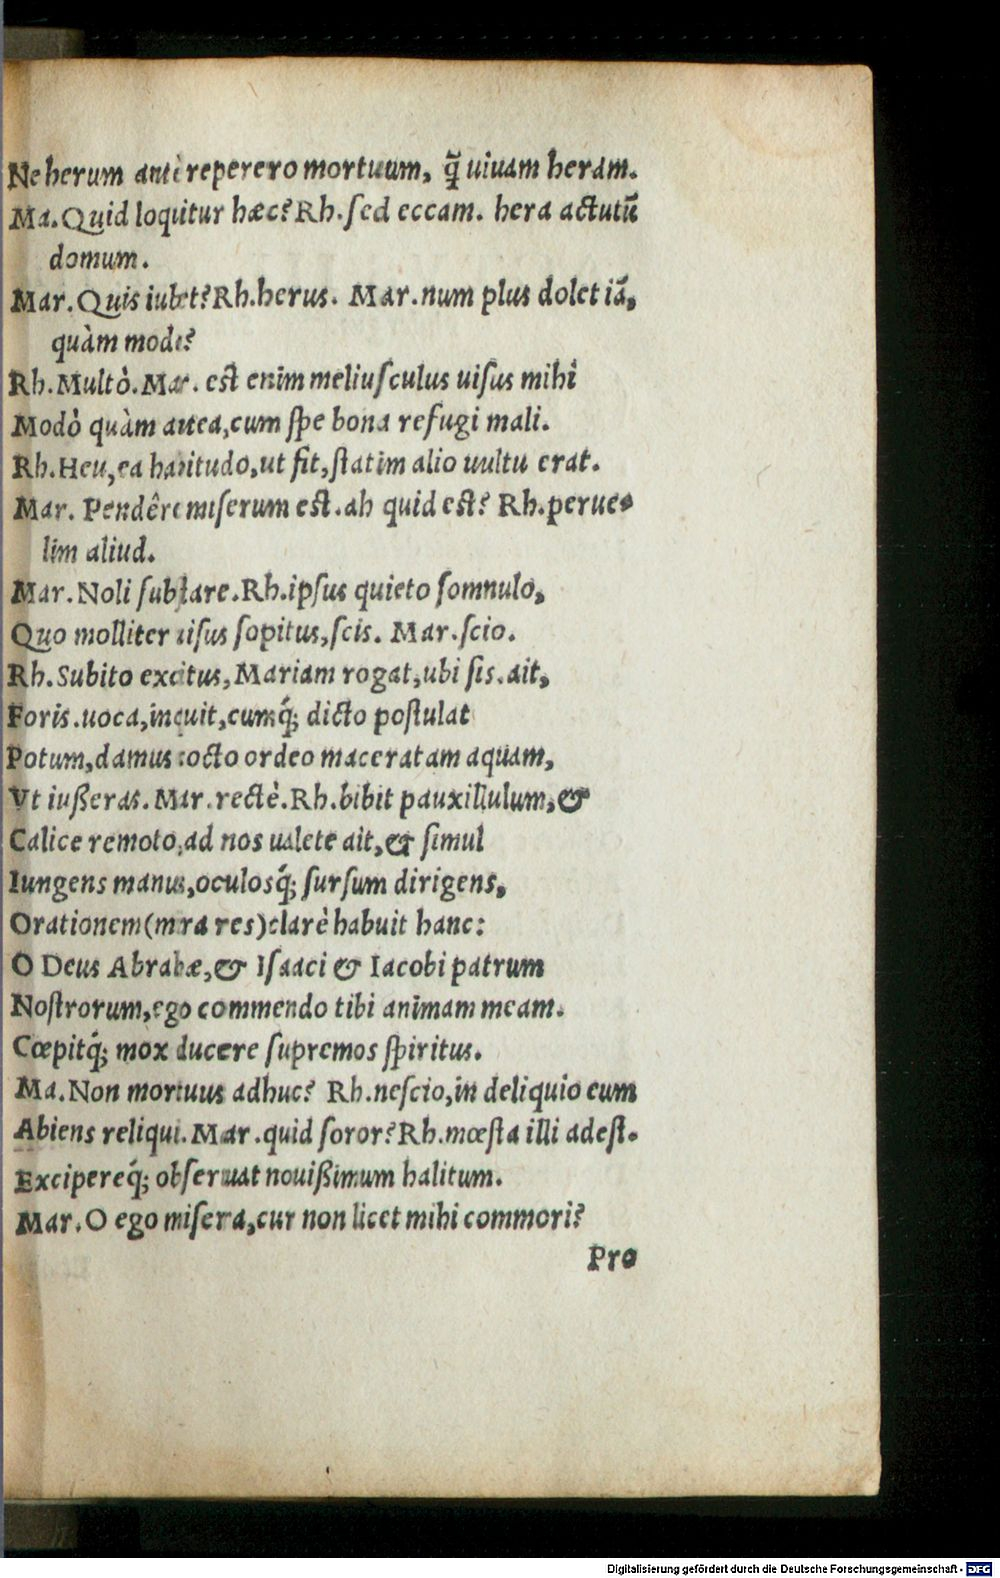 Ne herum antè reperero mortuum, q̃ uiuam heram.
Ma. Quid loquitur hæc? Rh. sed eccam. hera actutũ
domum.
Mar. Quis iubet? Rh. herus. Mar. num plus dolet iã,
quàm modò?
Rh. Multò. Mar. est enim meliusculus uisus mihi
Modò quàm antea, cum spe bona refugi mali.
Rh. Heu, ea habitudo, ut fit, statim alio uultu erat.
Mar. Pendêre miserum est. ah quid est? Rh. perue-
lim aliud.
Mar. Noli sublare. Rh. ipsus quieto somnulo,
Quo molliter uisus sopitus, scis. Mar. scio.
Rh. Subito excitus, Mariam rogat, ubi sis. ait,
Foris. uoca, inquit, cumq́; dicto postulat
Potum, damus cocto ordeo maceratam aquam,
Vt iußeras. Mar. rectè. Rh. bibit pauxillulum, &
Calice remoto, ad nos ualete ait, & simul
Iungens manus, oculosq́; sursum dirigens,
Orationem (mira res) clarè habuit hanc:
O Deus Abrahæ, & Isaaci & Iacobi patrum
Nostrorum, ego commendo tibi animam meam.
Cœpitq́; mox ducere supremos spiritus.
Ma. Non mortuus adhuc? Rh. nescio, in deliquio eum
Abiens reliqui. Mar. quid soror? Rh. mœsta illi adest.
Excipereq́; obseruat nouißimum halitum.
Mar. O ego misera, cur non licet mihi commori?
Pro
Digitalisierung gefördert durch die Deutsche Forschungsgemeinschaft - DFG